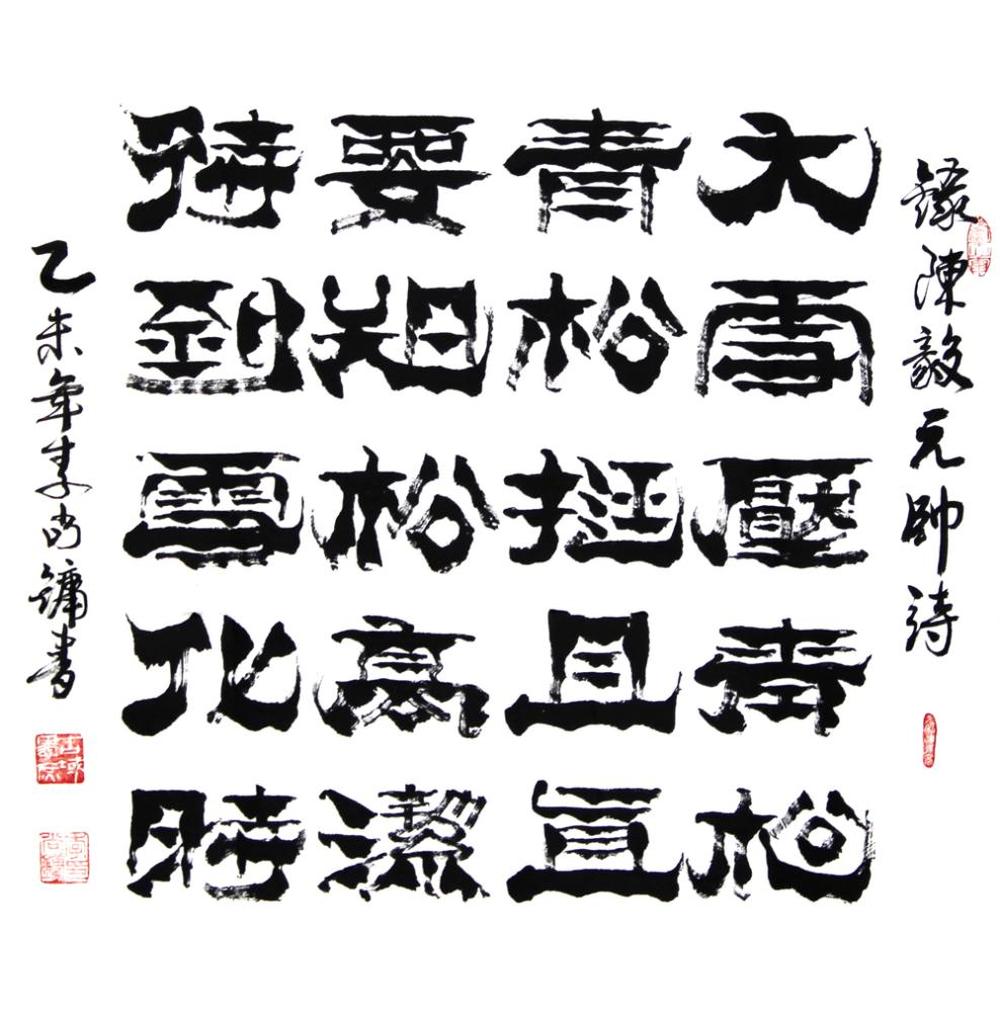 録陳毅元帥詩
大雪壓青松
青松挺且直
要知松高潔
待到雪化時
乙未年李尚鏞書